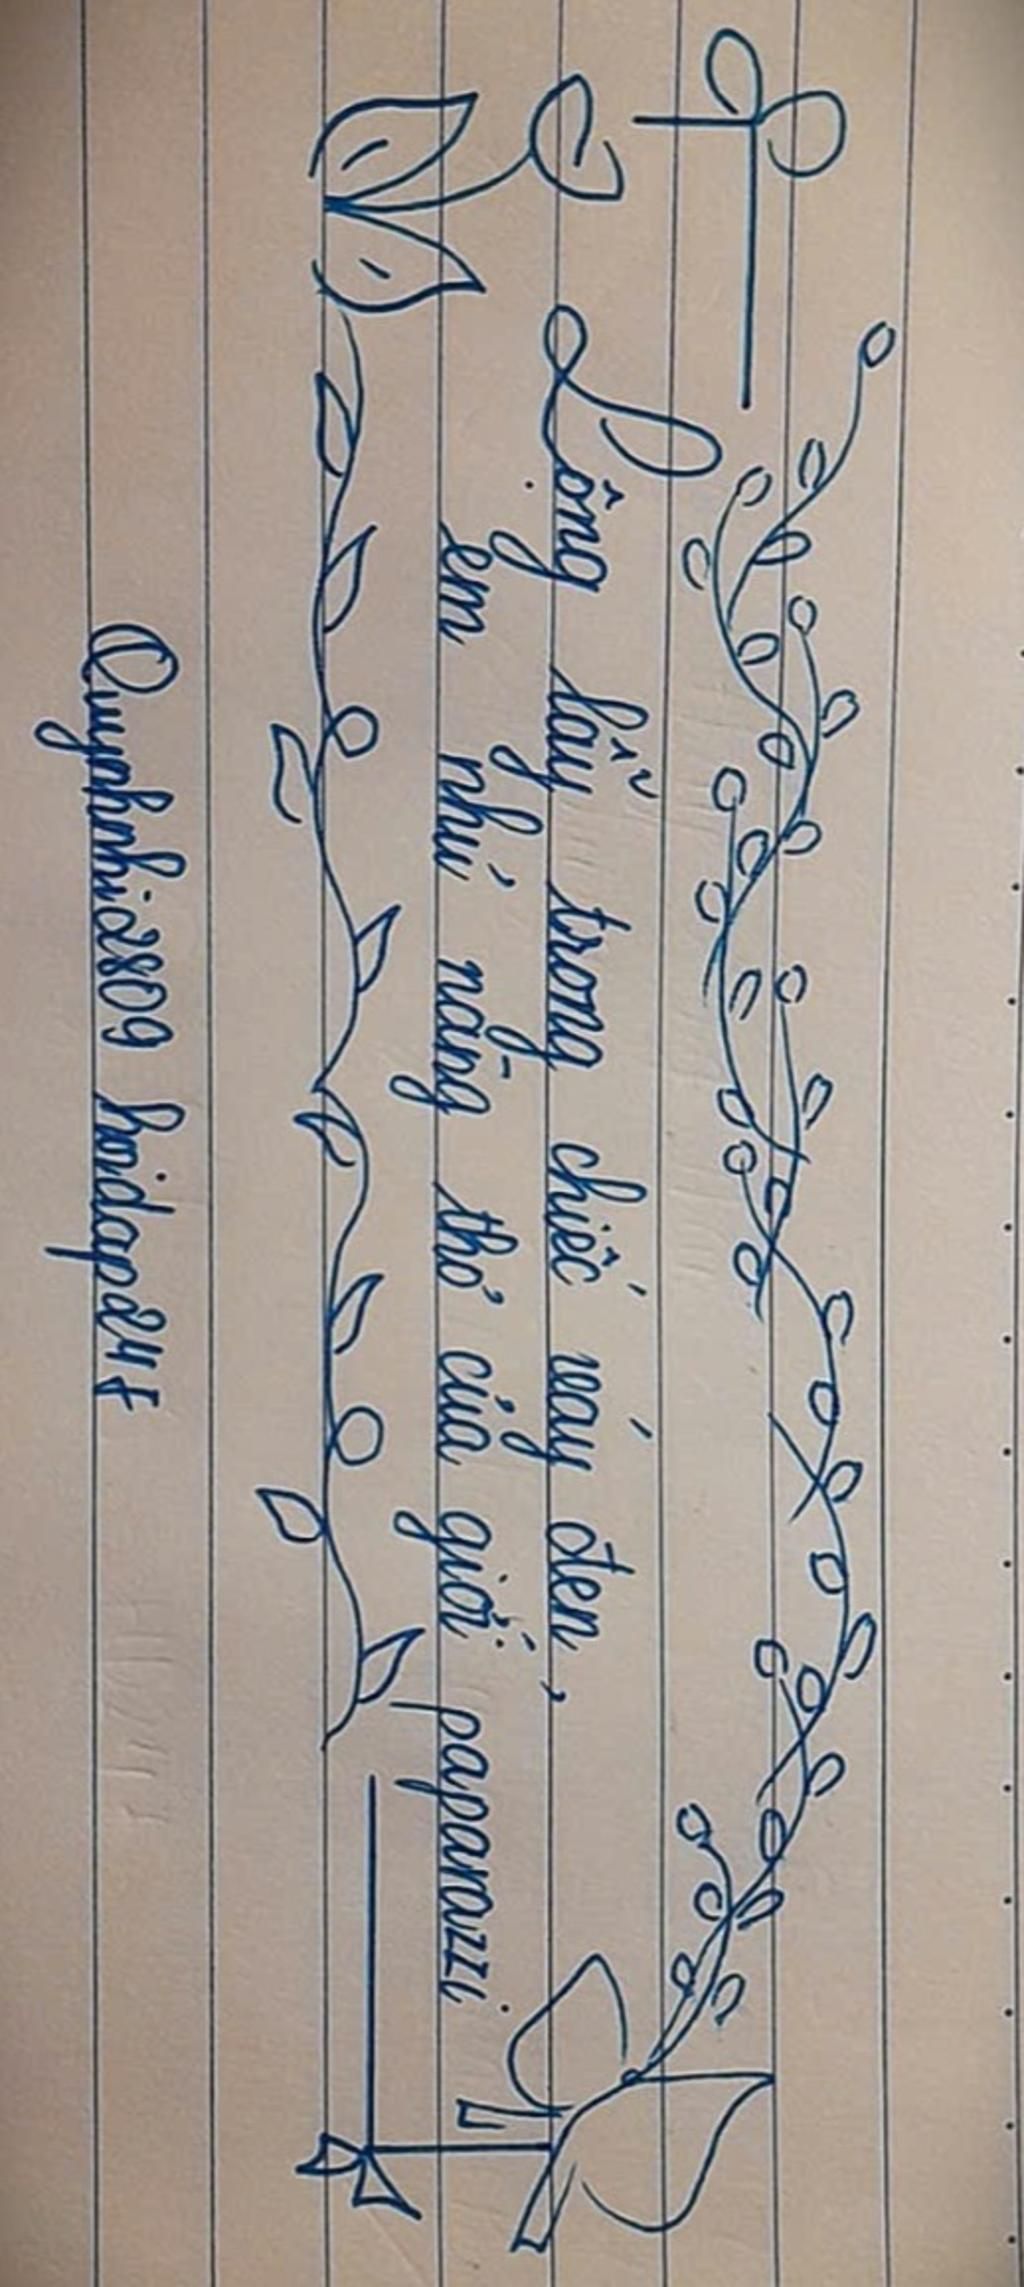 Lộng lẫy trong chiếc váy đen,
em như nàng thơ của giới paparazzi.
Quynhnhi2809 hoidap247